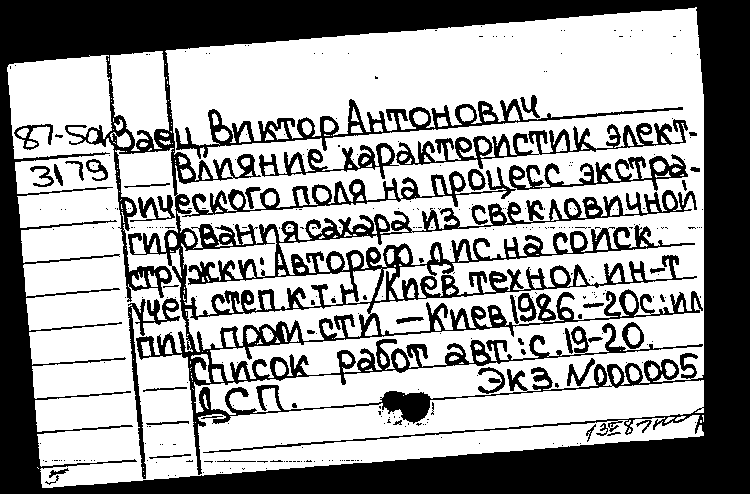 87-50к Заец Виктор Антонович.
3179 Влияние характеристик элект-
рического поля на процесс экстра-
гирования сахара из свекловичной
стружки: Автореф. дис. на соиск.
учен. степ. к.т.н. / Киев. технол. ин-т
пищ. пром-сти. — Киев, 1986. — 20с.: ил
Список работ авт.: с. 19-20.
ДСП. Экз. N000005
5